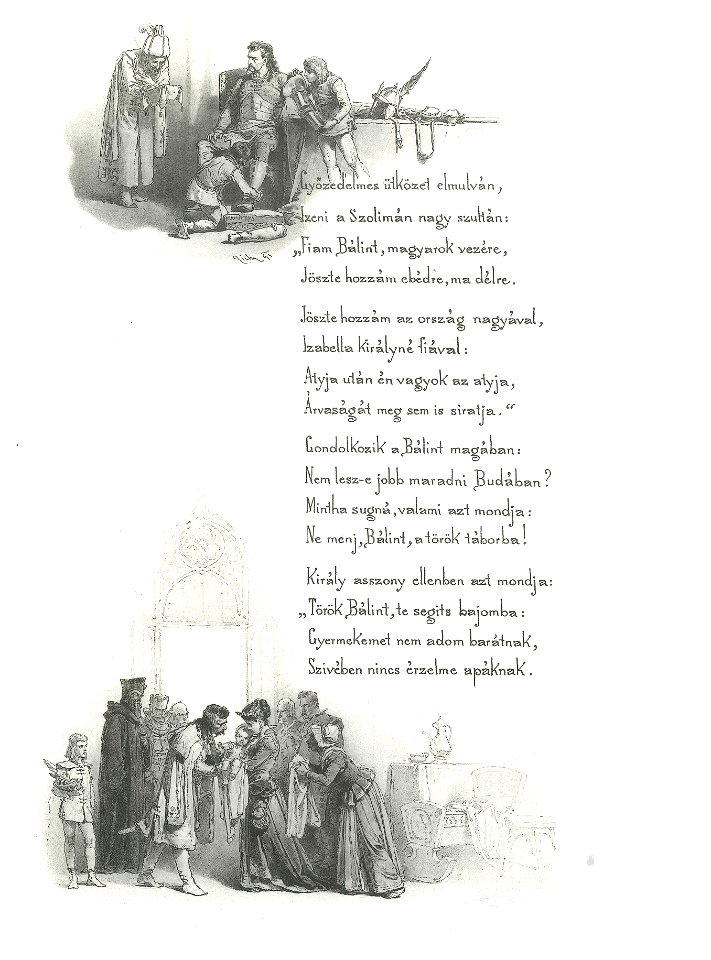 Győzedelmes ütközet elmulván,
Izeni a Szolimán nagy szultán:
„Fiam Bálint, magyarok vezére,
Jöszte hozzám ebédre, ma délre.
Jöszte hozzám az ország nagyával,
Izabella királyné fiával:
Atyja után én vagyok az atyja,
Árvaságát meg sem is siratja.“
Gondolkozik a Bálint magában:
Nem lesz-e jobb maradni Budában?
Mintha sugná, valami azt mondja:
Ne menj, Bálint, a török táborba!
Király asszony ellenben azt mondja:
„Török Bálint, te segits bajomba:
Gyermekemet nem adom barátnak,
Szivében nincs érzelme apáknak.